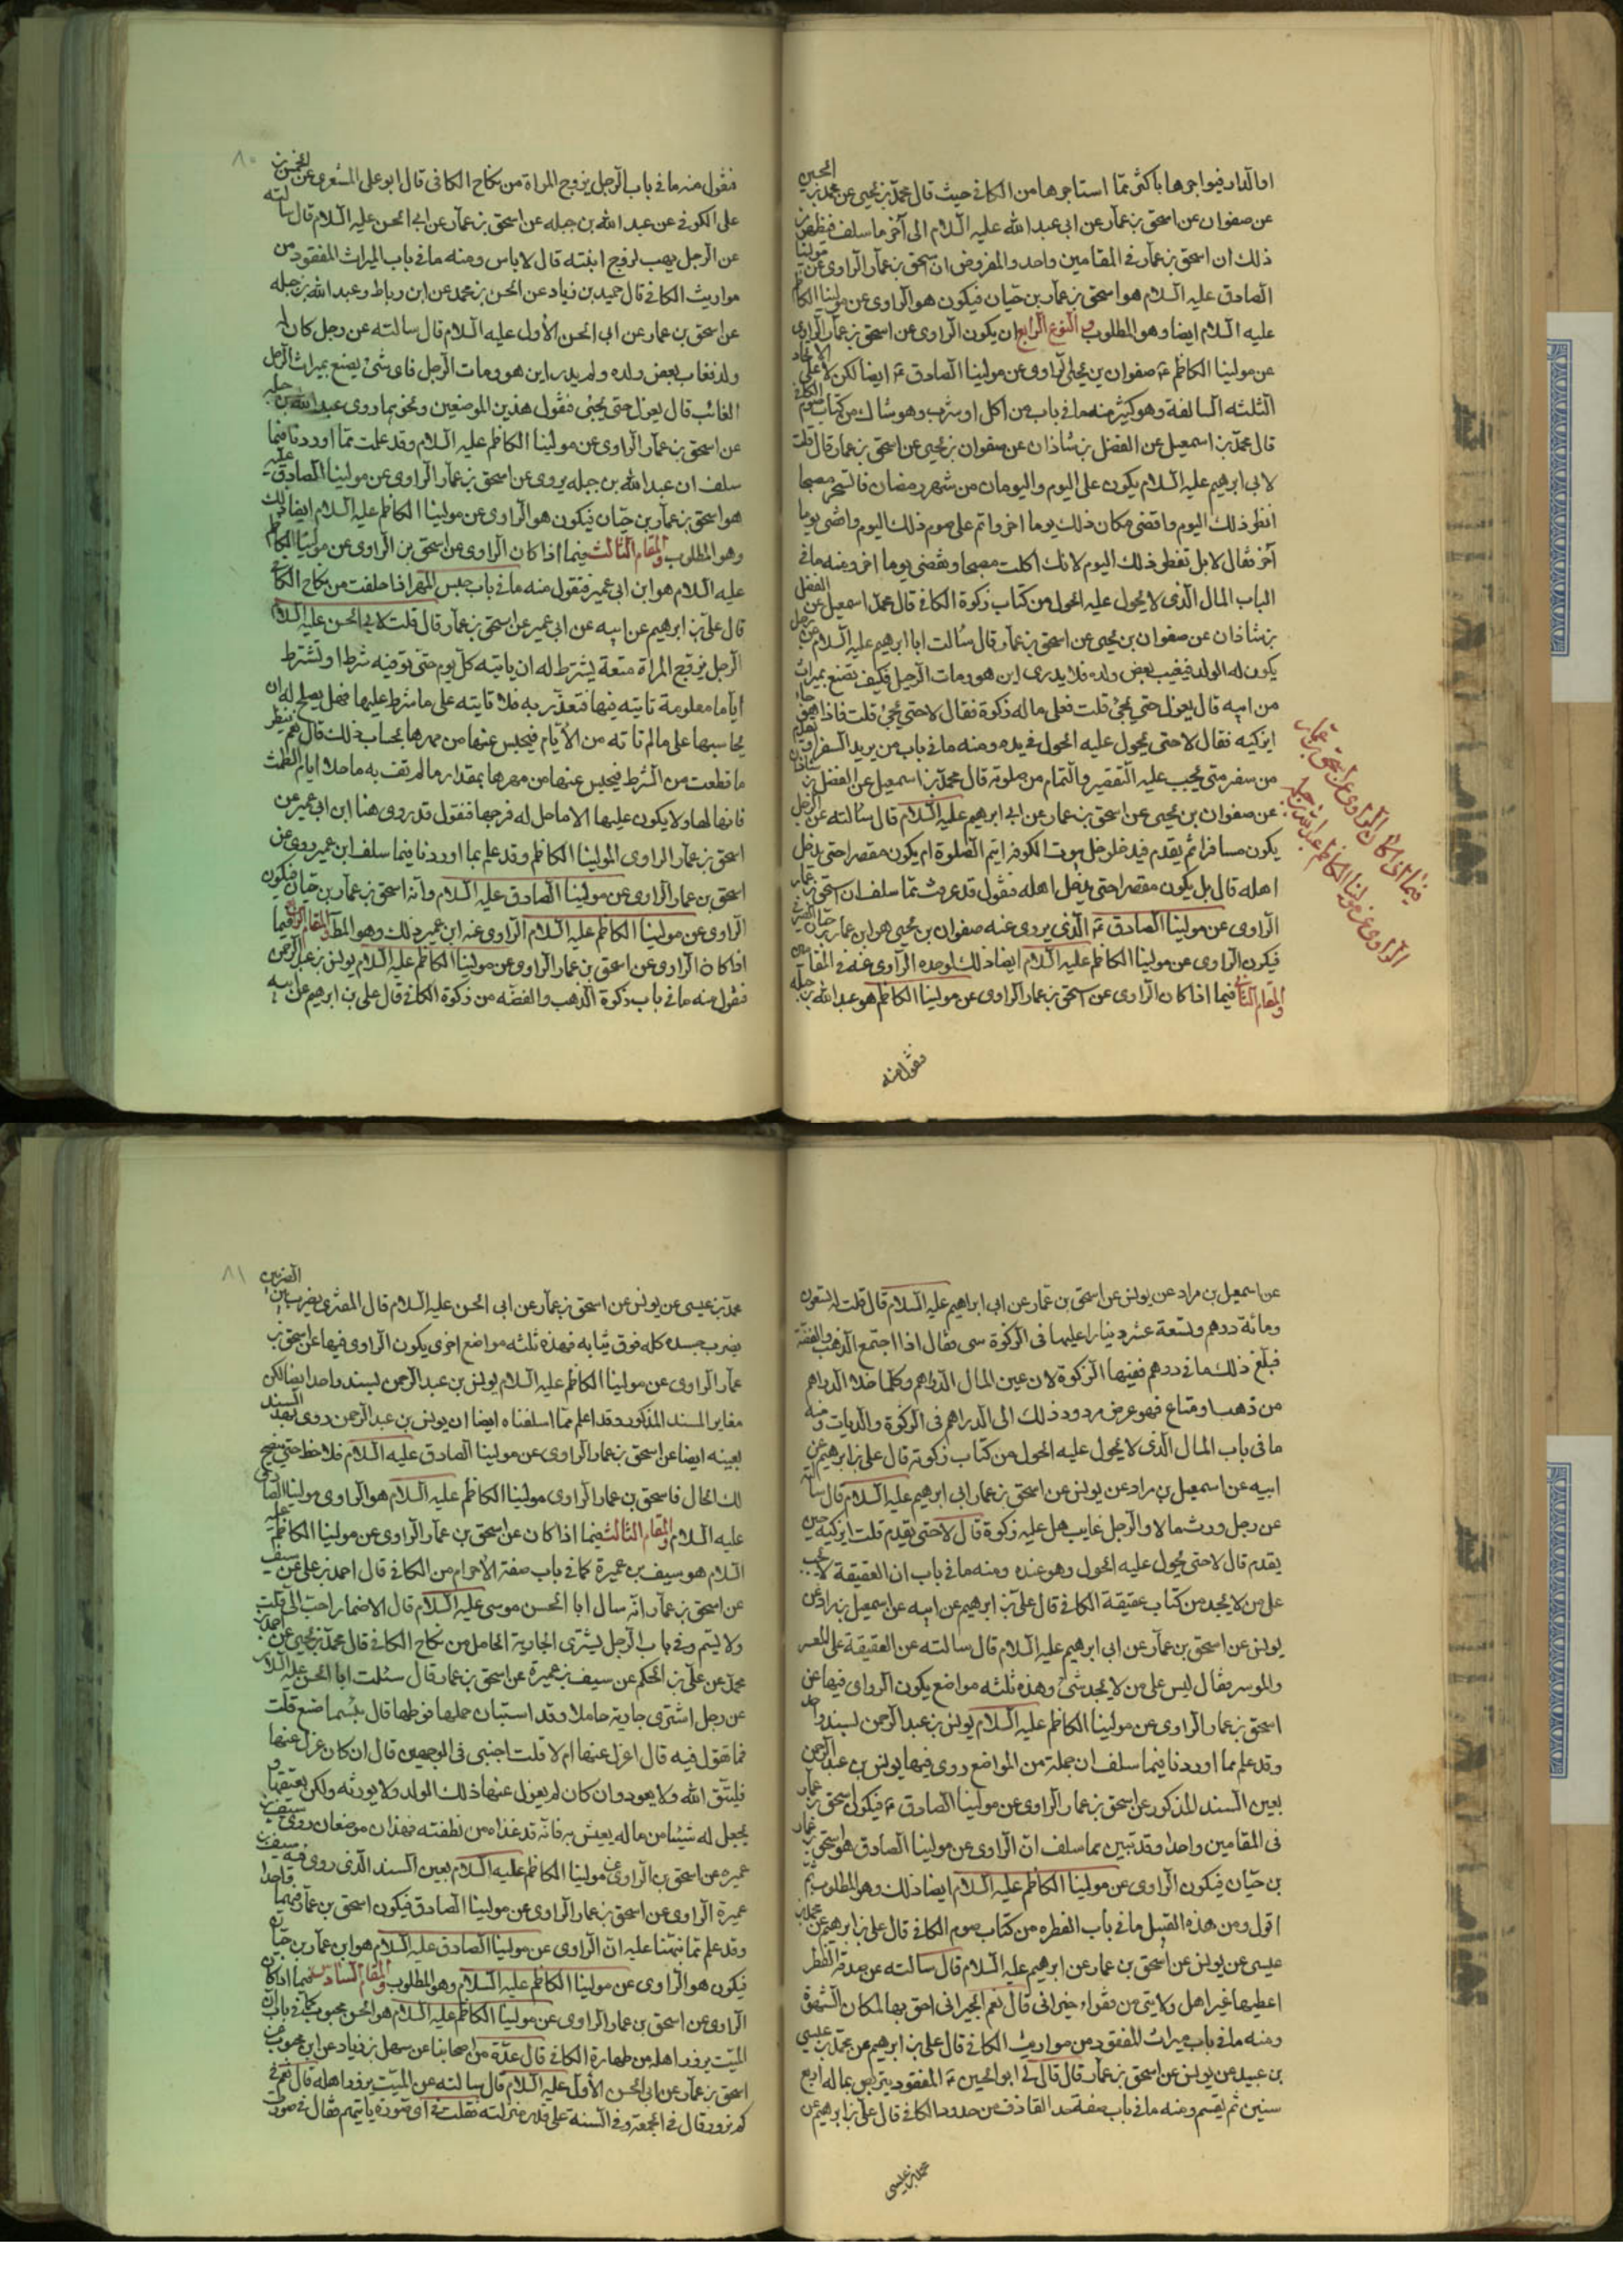 او الدار فيواجرها باكثر مما استاجرها من الكافى حيث قال محمد بن يحيى عن محمد بن الحسين
عن صفوان عن اسحق بن عمار عن ابى عبد الله عليه السلام الى آخر ما سلف فظهر من
ذلك ان اسحق بن عمار فى المقامين واحد والمفروض ان اسحق بن عمار الراوى عن مولينا
الصادق عليه السلام هو اسحق بن عمار بن حيان فيكون هو الراوى عن مولينا الكاظم
عليه السلام ايضا وهو المطلوب والنوع الرابع ان يكون الراوى عن اسحق بن عمار الراوى
عن مولينا الكاظم ع صفوان بن يحيى الراوى عن مولينا الصادق ع ايضا لكن لا على الانحاء
الثلثه السالفة وهو كثير منه ما فى باب من اكل او شرب وهو شاك من كتاب صوم الكافى
قال محمد بن اسمعيل عن الفضل بن شاذان عن صفوان بن يحيى عن اسحق بن عمار قال قلت
لابى ابرهيم عليه السلام يكون على اليوم واليومان من شهر رمضان فاتسحر مصبحا
افطر ذلك اليوم واقضى مكان ذلك يوما اخر واتم على صوم ذلك اليوم واقضى يوما
آخر فقال لا بل تفطر ذلك اليوم لانك اكلت مصبحا وتقضى يوما اخر ومنه ما فى
الباب المال الذى لا يحول عليه الحول من كتاب زكوة الكافى قال محمد اسمعيل عن الفضل
بن شاذان عن صفوان بن يحيى عن اسحق بن عمار قال سالت ابا ابرهيم عليه السلام عن رجل
يكون له الولد فيغيب بعض ولده فلا يدرى اين هو ومات الرجل فكيف تصنع بميراث
من ابيه قال يعزل حتى يجئ قلت فعلى ماله زكوة فقال لا حتى يجئ قلت فاذا هو جاء
ايزكيه فقال لا حتى يحول عليه الحول فى يده ومنه ما فى باب من يريد السفر او تقدم
من سفر متى يجب عليه التقصير والتمام من صلوته قال محمد بن اسمعيل عن الفضل بن شاذان
عن صفوان بن يحيى عن اسحق بن عمار عن ابى ابرهيم عليه السلام قال سالته عن الرجل
يكون مسافرا ثم يقدم فيدخل بيوت الكوفه ايتم الصلوة ام يكون مقصرا حتى يدخل
اهله قال بل يكون مقصرا حتى يدخل اهله فنقول قد عرفت مما سلف ان اسحق بن عمار
الراوى عن مولينا الصادق ع الذى يروى عنه صفوان بن يحيى هو ابن عمار بن حيان الصيرفى
فيكون الراوى عن مولينا الكاظم عليه السلام ايضا ذلك لوحده الراوى عنه فى المقامين
والمقام الثانى فيما اذا كان الراوى عن اسحق بن عمار الراوى عن مولينا الكاظم هو عبد الله بن جبله
فنقول منه
فيما اذا كان الراوى عن اسحق بن عمار
الراوى عن مولينا الكاظم عبد الله بن جبله
٨٠
فنقول منه ما فى باب الرجل يزوج المراة من نكاح الكافى قال ابو على الاشعرى عن الحسن بن
على الكوفى عن عبد الله بن جبله عن اسحق بن عمار عن ابى الحسن عليه السلام قال سالته
عن الرجل يهب لزوج ابنته قال لا باس ومنه ما فى باب الميراث المفقود من
مواريث الكافى قال حميد بن زياد عن الحسن بن محمد عن ابن رباط وعبد الله بن جبله
عن اسحق بن عمار عن ابى الحسن الاول عليه السلام قال سالته عن رجل كان له
ولد فغاب بعض ولده ولم يدر اين هو ومات الرجل فاى شئ يصنع بميراث الرجل
الغائب قال يعزل حتى يجئ فنقول هذين الموضعين ونحوهما روى عبد الله بن جبله
عن اسحق بن عمار الراوى عن مولينا الكاظم عليه السلام وقد علمت مما اوردنا فيما
سلف ان عبد الله بن جبله يروى عن اسحق بن عمار الراوى عن مولينا الصادق عليه
هو اسحق بن عمار بن حيان فيكون هو الراوى عن مولينا الكاظم عليه السلام ايضا كذلك
وهو المطلوب والمقام الثالث فيما اذا كان الراوى عن اسحق بن الراوى عن مولينا الكاظم
عليه السلام هو ابن ابى عمير فنقول منه ما فى باب حبس المهر اذا خلفت من نكاح الكافى
قال على بن ابرهيم عن ابيه عن ابى عمير عن اسحق بن عمار قال قلت لابى الحسن عليه السلام
الرجل يتزوج المراة متعة يشترط له ان ياتيه كل يوم حتى توفيه شرطه او تشترط
اياما معلومة تاتيه فيها فتغدر به فلا تاتيه على ما شرط عليها فهل يصلح له ان
يحاسبها على ما لم تاته من الايام فيحبس عنها من مهرها بحساب ذلك قال نعم ينظر
ما قطعت من الشرط فيحبس عنها من مهرها بمقدار ما لم تف به ما خلا ايام الطمث
فانها لها ولا يكون عليها الا ما حل له فرجها فنقول قد روى هنا ابن ابى عمير عن
اسحق بن عمار الراوى المولينا الكاظم وقد علم بما اوردنا فيما سلف ابن عمير روى عن
اسحق بن عمار الراوى عن مولينا الصادق عليه السلام وانه اسحق بن عمار بن حيان فيكون
الراوى عن مولينا الكاظم عليه السلام الراوى عنه ابن عمير ذلك وهو المط والمقام الرابع فيما
اذا كان الراوى عن اسحق بن عمار الراوى عن مولينا الكاظم عليه السلام يونس بن عبد الرحمن
فنقول منه ما فى باب زكوة الذهب والفضه من زكوة الكافى قال على بن ابرهيم عن ابيه
عن اسمعيل بن مراد عن يونس عن اسحق بن عمار عن ابى ابراهيم عليه السلام قال قلت له تسعون
ومائة درهم وتسعة عشر دينارا عليها فى الزكوة شى فقال اذا اجتمع الذهب والفضة
فبلغ ذلك مائى درهم ففيها الزكوة لان عين المال الدراهم وكلما خلا الدراهم
من ذهب او متاع فهو عرض مردود ذلك الى الدراهم فى الزكوة والديات ومنه
ما فى باب المال الذى لا يحول عليه الحول من كتاب زكوته قال على بن ابرهيم عن
ابيه عن اسمعيل بن مراد عن يونس عن اسحق بن عمار ابى ابرهيم عليه السلام قال سالته
عن رجل ورث مالا والرجل غايب هل عليه زكوة قال لا حتى يقدم قلت ايزكيه حين
يقدم قال لا حتى يحول عليه الحول وهو عنده ومنه ما فى باب ان العقيقة لا تجب
على من لا يجد من كتاب عقيقة الكافى قال على بن ابرهيم عن ابيه عن اسمعيل بن مراد عن
يونس عن اسحق بن عمار عن ابى ابرهيم عليه السلام قال سالته عن العقيقة على المعسر
والموسر فقال ليس على من لا يجد شئ وهذه ثلثه مواضع يكون الراوى فيها عن
اسحق بن عمار الراوى عن مولينا الكاظم عليه السلام يونس بن عبد الرحمن بسند واحد
وقد علم مما اوردنا فيما سلف ان جملة من المواضع روى فيها يونس بن عبد الرحمن
بعين السند المذكور عن اسحق بن عمار الراوى عن مولينا الصادق ع فيكون اسحق بن عمار
فى المقامين واحدا وقد تبين مما سلف ان الراوى عن مولينا الصادق هو اسحق بن عمار
بن حيان فيكون الراوى عن مولينا الكاظم عليه السلام ايضا ذلك وهو المطلوب ثم
اقول ومن هذه القبيل ما فى باب الفطره من كتاب صوم الكافى قال على بن ابرهيم عن محمد بن
عيسى عن يونس عن اسحق بن عمار عن ابرهيم عليه السلام قال سالته عن صدقة الفطر
اعطيها غير اهل ولايتى من فقراء جيرانى قال نعم الجيرانى احق بها لمكان الشهرة
ومنه ما فى باب ميراث المفقود من مواريث الكافى قال على بن ابرهيم عن محمد بن عيسى
بن عبيد عن يونس عن اسحق بن عمار قال قال لى ابو الحسين ع المفقود يتربص بماله اربع
سنين ثم يقسم ومنه ما فى باب صفة حد القاذف من حدود الكافى قال على بن ابرهيم عن
محمد بن عيسى
٨١
محمد بن عيسى عن يونس عن اسحق بن عمار عن ابى الحسن عليه السلام قال المفترى يضرب بين الضربين
يضرب جسده كله فوق ثيابه فهذه ثلثه مواضع اخرى يكون الراوى فيها عن اسحق بن
عمار الراوى عن مولينا الكاظم عليه السلام يونس بن عبد الرحمن بسند واحد ايضا لكن
مغاير المسند المذكور وقد اعلم مما اسلفناه ايضا ان يونس بن عبد الرحمن روى بهذا السند
بعينه ايضا عن اسحق بن عمار الراوى عن مولينا الصادق عليه السلام فلاحظ حتى يتضح
لك الحال فاسحق بن عمار الراوى مولينا الكاظم عليه السلام هو الراوى مولينا الصادق
عليه السلام والمقام الثالث فيما اذا كان عن اسحق بن عمار الراوى عن مولينا الكاظم عليه
السلام هو سيف بن عميرة كما فى باب صفة الاحرام من الكافى قال احمد بن على عن سيف
عن اسحق بن عمار انه سال ابا الحسن موسى عليه السلام قال الاضمار احب الى قلت
ولا يتم وفى باب الرجل يشترى الجارية الحامل من نكاح الكافى قال محمد بن يحيى عن احمد بن
محمد عن على بن الحكم عن سيف بن عميرة عن اسحق بن عمار قال سئلت ابا الحسن عليه السلام
عن رجل اشترى جارية حاملا وقد استبان حملها فوطها قال بئسما صنع قلت
فما تقول فيه قال اعزل عنها ام لا قلت اجبنى فى الوجهين قال ان كان عزل عنها
فليتق الله ولا يعود وان كان لم يعزل عنها ذلك الولد ولا يورثه ولكن يعتقه و
يجعل له شيئا من ماله يعيش به فانه قد غذاه من نطفته فهذان موضعان روى سيف بن
عميره عن اسحق بن الراوى عن مولينا الكاظم عليه السلام بعين السند الذى روى فيه سيف بن
عميرة الراوى عن اسحق بن عمار الراوى عن مولينا الصادق فيكون اسحق بن عمار فيهما واحدا
وقد علم مما نبهنا عليه ان الراوى عن مولينا الصادق عليه السلام هو ابن عمار بن حيان
فيكون هو الراوى عن مولينا الكاظم عليه السلام وهو المطلوب والمقام السادس فيما اذا كان
الراوى عن اسحق بن عمار الراوى عن مولينا الكاظم عليه السلام هو الحسن محبوب كما فى باب ان
الميت يزور اهله من طهارة الكافى قال عدة من اصحابنا عن سهل بن زياد عن ابن محبوب عن
اسحق بن عمار عن ابى الحسن الاول عليه السلام قال سالته عن الميت يزور اهله قال نعم فى
كم يزور قال فى الجمعة وفى السنة على قدر منزلته فقلت فى اى صوره ياتيهم فقال فى صورة